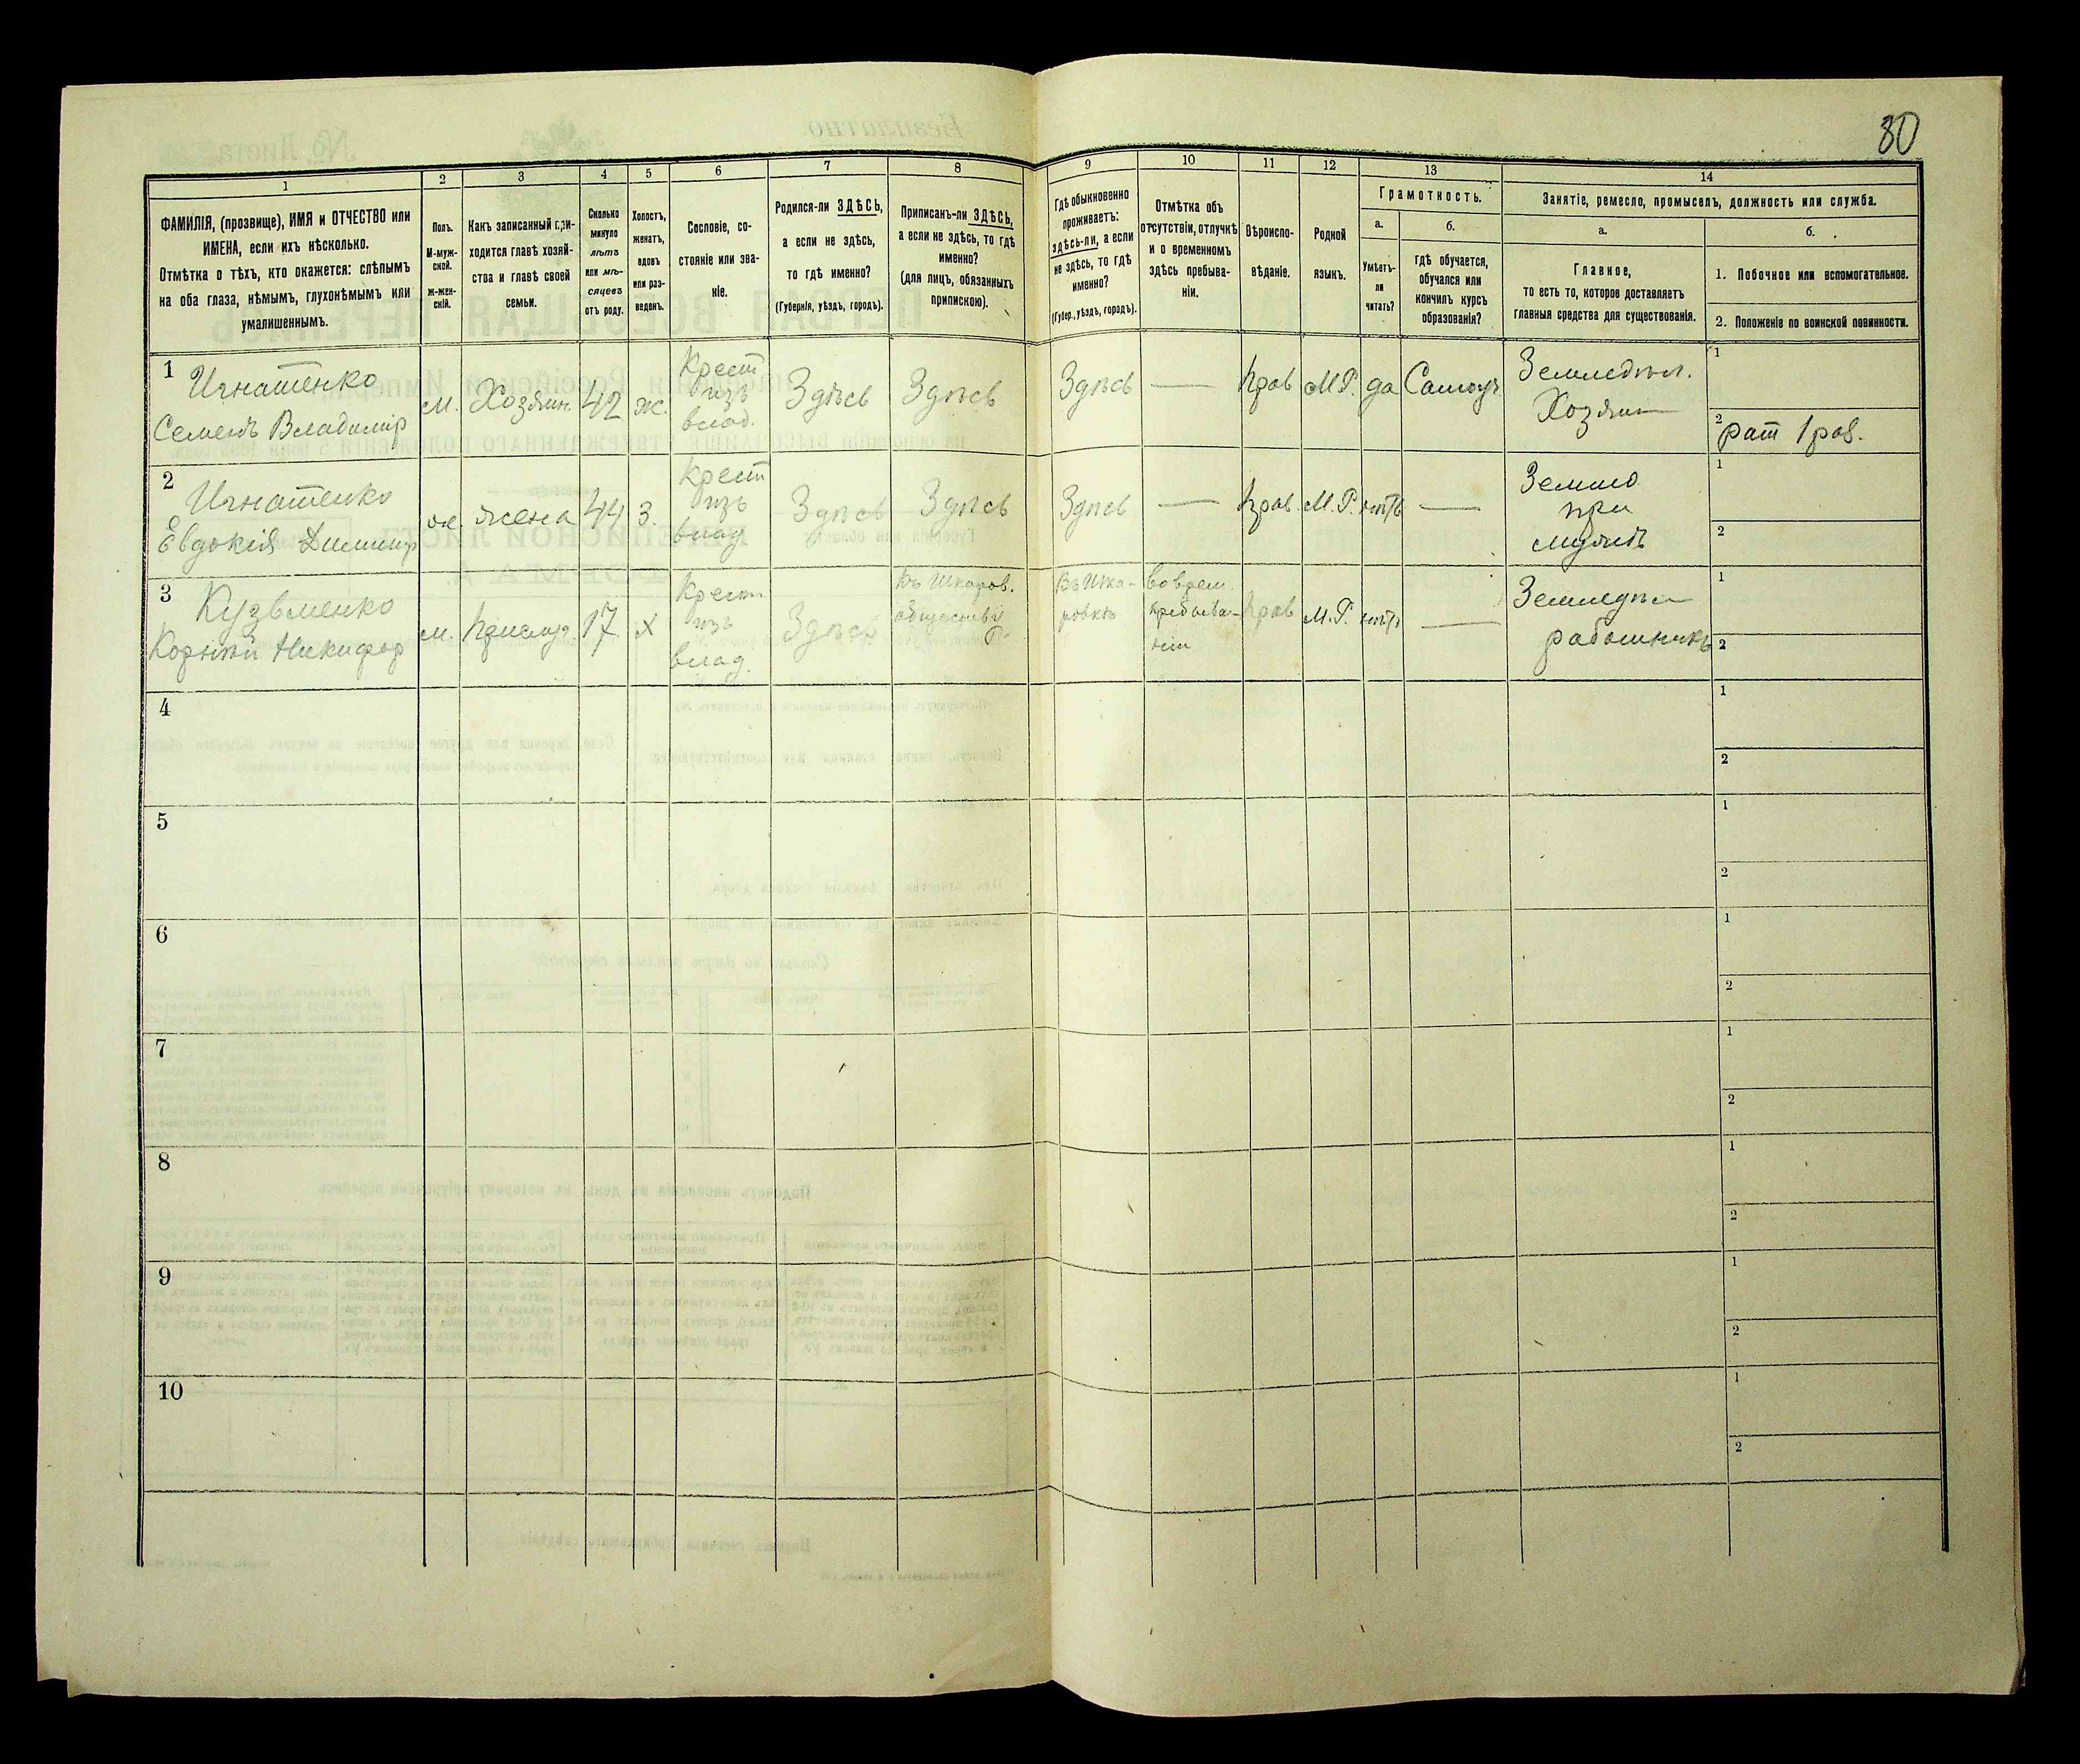 80
1
2
3
4
5
6
7
8
9
10
11
12
13
14
ФАМИЛІЯ, (прозвище), ИМЯ и ОТЧЕСТВО или
ИМЕНА, если ихъ нѣсколько.
Отмѣтка о тѣхъ, кто окажется: слѣпымъ
на оба глаза, нѣмымъ, глухонѣмымъ или
умалишеннымъ.
Полъ.
М-муж-
ской.
ж-жен-
скій.
Какъ записанный при-
ходится главѣ хозяй-
ства и главѣ своей
семьи.
Сколько
минуло
лѣтъ
или мѣ-
сяцевъ
отъ роду.
Холостъ,
женатъ,
вдовъ
или раз-
веденъ.
Сословіе, со-
стояніе или зва-
ніе.
Родился-ли ЗДѢСЬ,
а если не здѣсь,
то гдѣ именно?
(Губернія, уѣздъ, городъ).
Приписанъ-ли ЗДѢСЬ,
а если не здѣсь, то гдѣ
именно?
(для лицъ, обязанныхъ
припискою).
Гдѣ обыкновенно
проживаетъ:
здѣсь-ли, а если
не здѣсь, то гдѣ
именно?
(Губер., уѣздъ, городъ).
Отмѣтка объ
отсутствіи, отлучкѣ
и о временномъ
здѣсь пребыва-
ніи.
Вѣроиспо-
вѣданіе.
Родной
языкъ.
Грамотность.
а.
Умѣетъ-
ли
читать?
б.
гдѣ обучается,
обучался или
кончилъ курсъ
образованія?
Занятіе, ремесло, промыселъ, должность или служба.
а.
Главное,
то есть то, которое доставляетъ
главныя средства для существованія.
б.
1. Побочное или вспомогательное.
2. Положеніе по воинской повинности.
1
Игнатенко
Семенъ Владимір
м.
Хозяин.
42
ж.
Крест
изъ
влад.
Здѣсь
Здѣсь
Здѣсь
—
Прав
М.Р.
да
Самоуч
Земледѣл.
Хозяин
1
2 рат 1 раз.
2
Игнатенко
Евдокія Димитр
ж.
жена
44
З.
Крест
изъ
влад
Здѣсь
Здѣсь
Здѣсь
—
Прав.
М.Р.
нѣтъ
—
при
мужѣ
1
2
3
Кузьменко
Корній Никифор
м.
Прислуг
17
Х
Крест
изъ
влад.
Здѣсь
Въ Шкаров.
обществѣ
Въ Шка-
ровкѣ
во врем.
пребыва-
ніи
Прав
М.Р.
нѣтъ
—
Земледѣл
работникъ
1
2
4
1
2
5
1
2
6
1
2
7
1
2
8
1
2
9
1
2
10
1
2